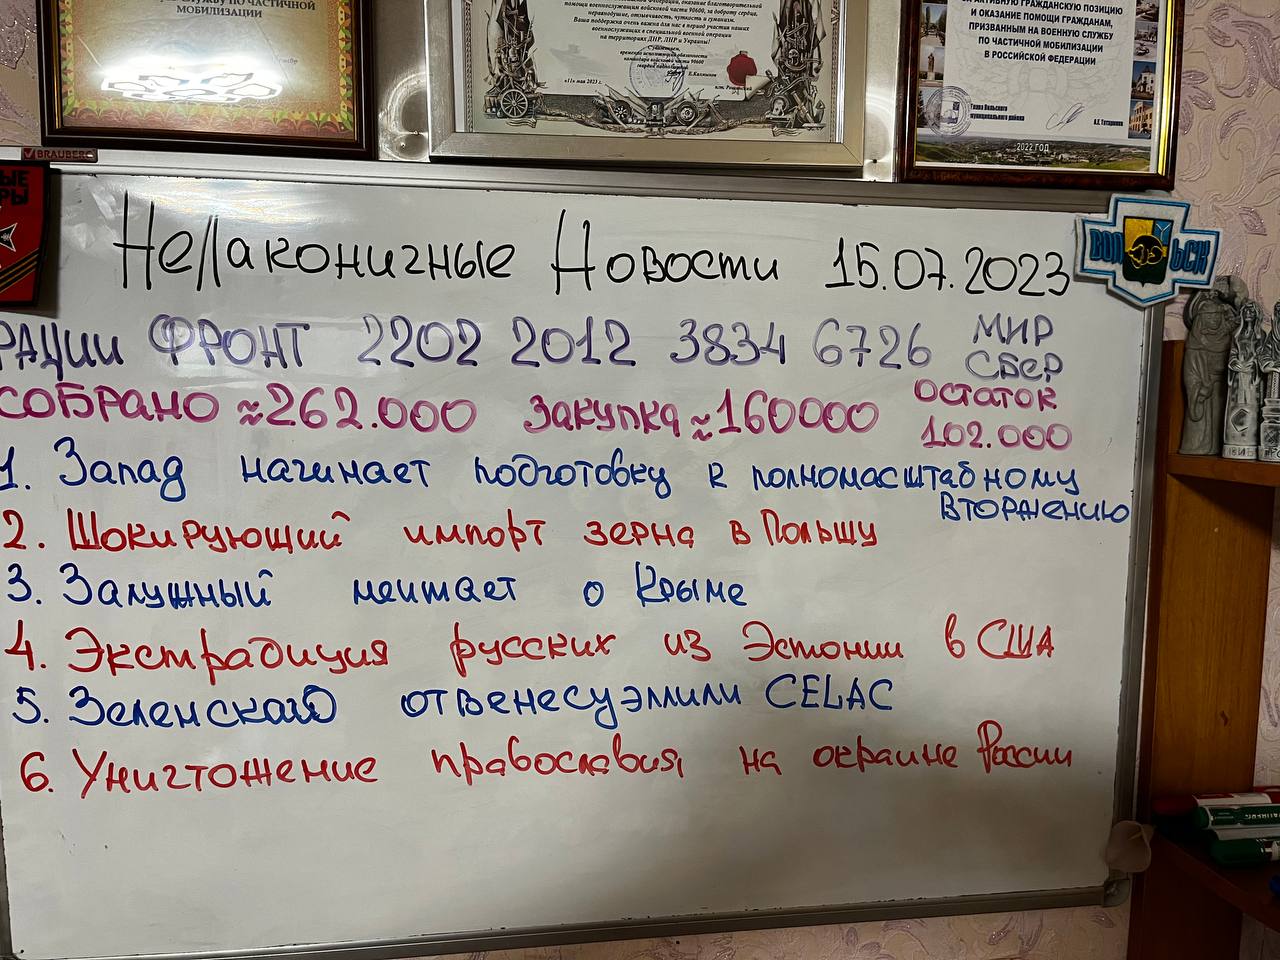 СЛУЖБУ ПО ЧАСТИЧНОЙ
МОБИЛИЗАЦИИ
помощи военнослужащим войсковой части 90600, за доброту сердца,
неравнодушие, отзывчивость, чуткость и гуманизм.
Ваша поддержка очень важна для нас в период участия наших
военнослужащих в специальной военной операции
на территориях ДНР, ЛНР и Украины!
С уважением,
командира войсковой части 90600
«11» мая 2023 г.
АКТИВНУЮ ГРАЖДАНСКУЮ ПОЗИЦИЮ
И ОКАЗАНИЕ ПОМОЩИ ГРАЖДАНАМ,
ПРИЗВАННЫМ НА ВОЕННУЮ СЛУЖБУ
ПО ЧАСТИЧНОЙ МОБИЛИЗАЦИИ
В РОССИЙСКОЙ ФЕДЕРАЦИИ
Глава Вольского
муниципального района
А.Е. Татаринов
2022 ГОД
BRAUBERG
НеЛаконичные Новости 15.07.2023
ВОЛЬСК
РАЦИИ ФРОНТ 2202 2012 3834 6726 МИР
СБеР
СОБРАНО ≈262.000 Закупка ≈160000 ОСТАТОК
102.000
1. Запад начинает подготовку к полномасштабному
ВТОРЖЕНИЮ
2. Шокирующий импорт зерна в Польшу
3. Залужный мечтает о Крыме
4. Экстрадиция русских из Эстонии в США
5. Зеленского отвенесуэллили CELAC
6. Уничтожение православия, на окраине России